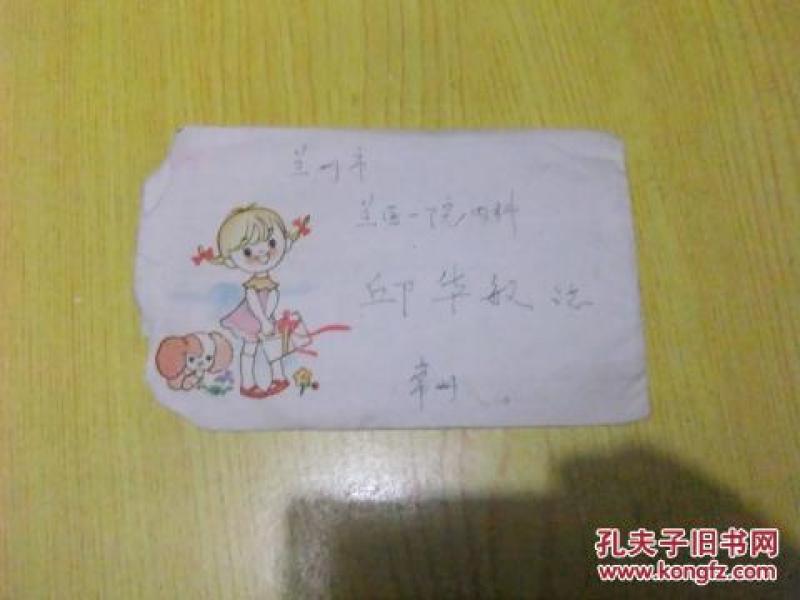 兰州市
兰医一院内科
邱华敏 志
常州
孔夫子旧书网
www.kongfz.com